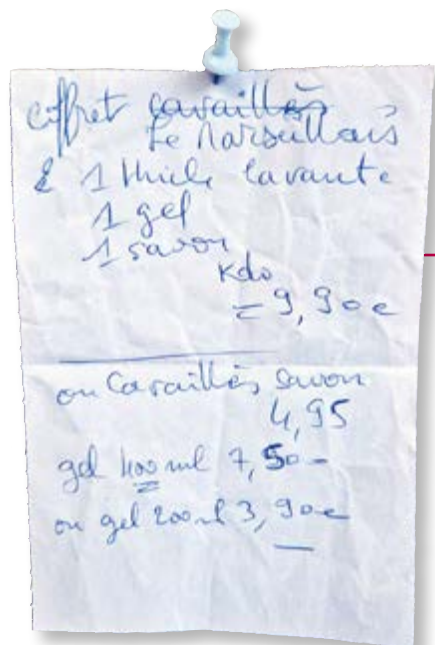 coffret cavaillès
Le Marseillais
& 1 Huile lavante
1 gel
1 savon
Kdo
= 9,90€
ou Cavaillès savon
4,95
gel 400 ml 7,50 -
ou gel 200ml 3,90€